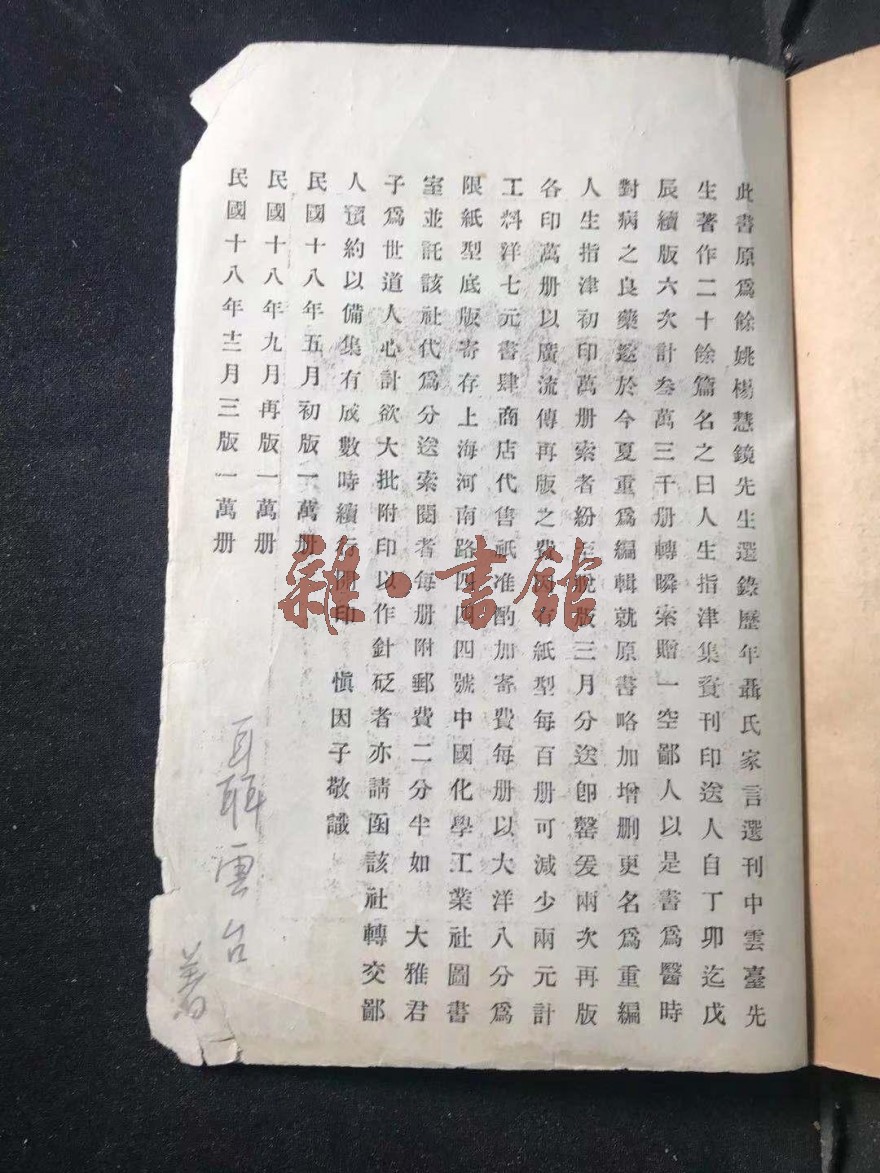 此書原爲餘姚楊慧鏡先生選錄歷年聶氏家言選刊中雲臺先
生著作二十餘篇名之曰人生指津集資刊印送人自丁卯迄戊
辰續版六次計叁萬三千册轉瞬索贈一空鄙人以是書爲醫時
對病之良藥爰於今夏重爲編輯就原書略加增删更名爲重編
人生指津初印萬册索者紛至脫版三月分送卽罄爰兩次再版
各印萬册以廣流傳再版之費因有紙型每百册可減少兩元計
工料洋七元書肆商店代售祇准酌加寄費每册以大洋八分爲
限紙型底版寄存上海河南路四四四號中國化學工業社圖書
室並託該社代爲分送索閱者每册附郵費二分半如 大雅君
子爲世道人心計欲大批附印以作針砭者亦請函該社轉交鄙
人預約以備集有成數時續行開印 愼因子敬識
民國十八年五月初版一萬册
民國十八年九月再版一萬册
民國十八年十二月三版一萬册
聶雲台
著
雜·書館